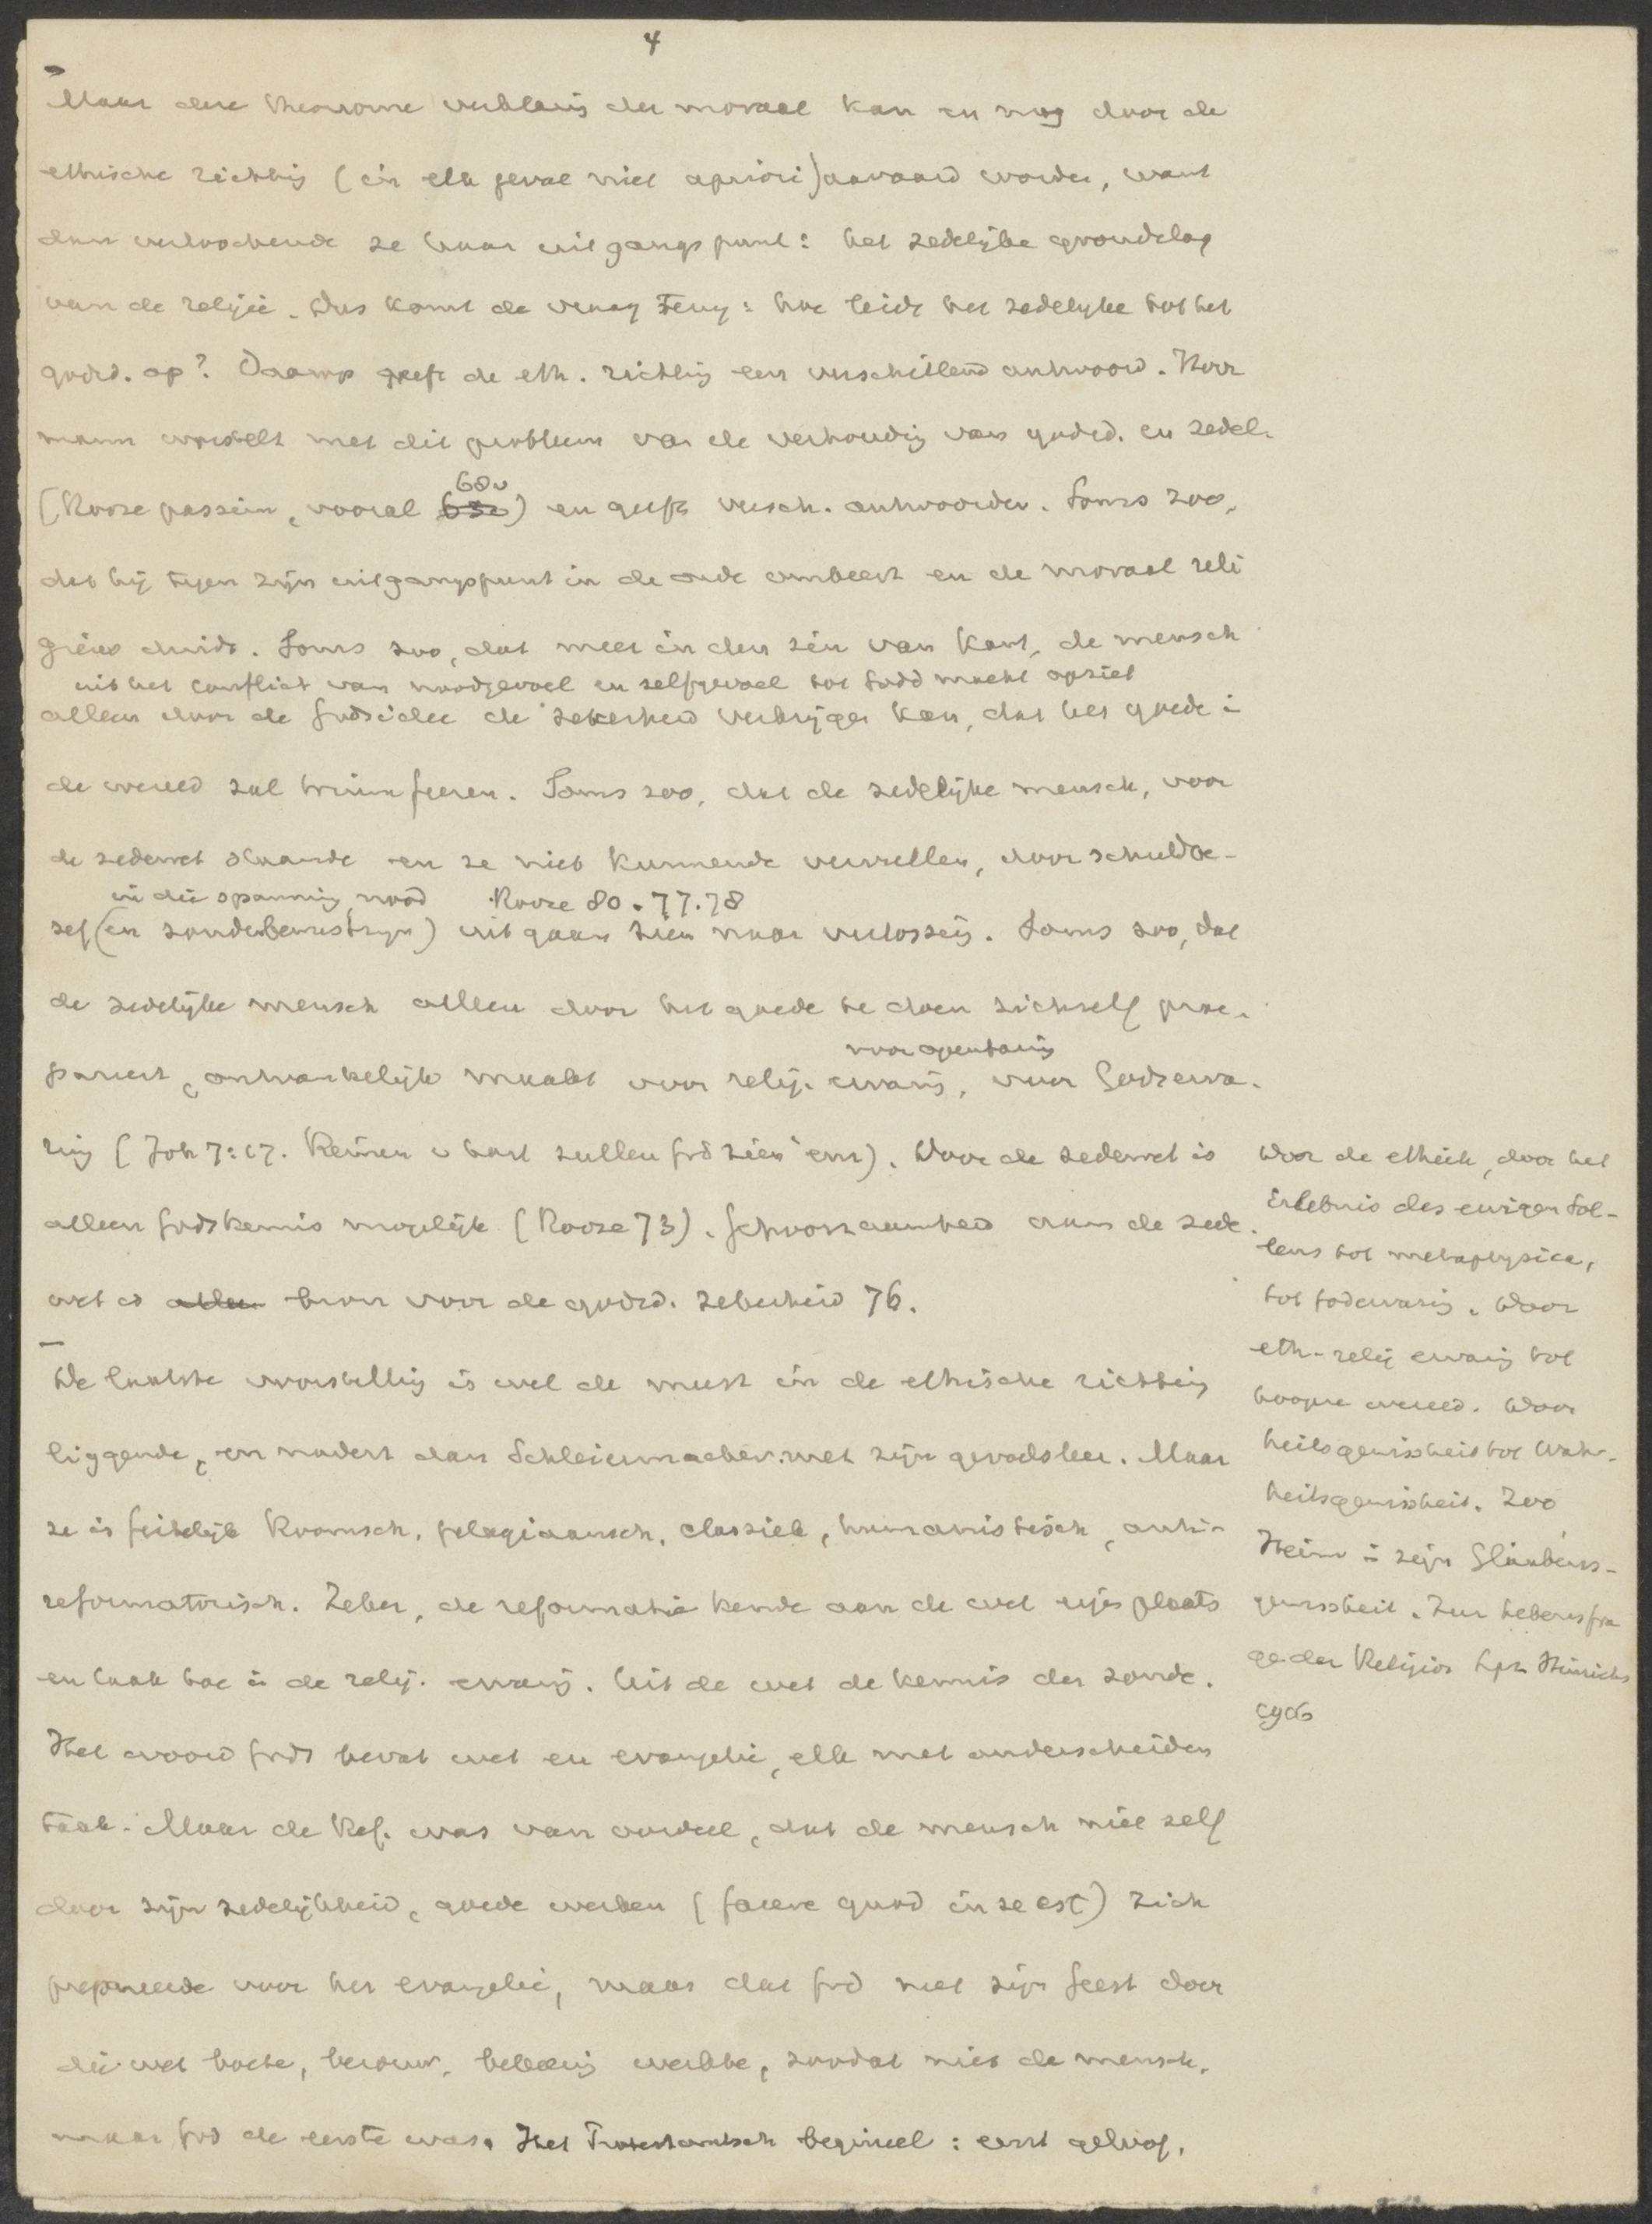 4
Maar deze theonome verklaring der moraal kan en mag door de
ethische richting (in elk geval niet apriori) aanvaard worden, want
dan verloochende ze haar uitgangspunt: het zedelijke grondslag
van de religie. Dus komt de vraag terug: hoe leidt het zedelijke tot het
godsd. op? Daarop geeft de eth. richting een verschillend antwoord. Herr
mann worstelt met dit probleem van de verhouding van godsd. en zedel.
(Rooze passim, vooral 68v) en geeft versch. antwoorden. Soms zoo,
dat hij tegen zijn uitgangspunt in de orde omkeert en de moraal reli
gieus duidt. Soms zoo, dat meer in den zin van Kant, de mensch
uit het conflict van noodgevoel en zelfgevoel tot Gods macht opziet
alleen door de Godsidee de zekerheid verkrijgen kan, dat het goede in
de wereld zal triumfeeren. Soms zoo, dat de zedelijke mensch, voor
de zedewet staande en ze niet kunnende vervullen, door schuldbe-
in die spanning, nood Rooze 80. 77.78
sef (en zondenbewustzijn) uit gaan zien naar verlossing. Soms zoo, dat
de zedelijke mensch alleen door het goede te doen zichzelf prae-
voor openbaring
pareert, ontvankelijk maakt voor relig. ervaring, voor Godserva-
ring (Joh 7:17. Reinen v hart zullen God zien enz). Door de zedewet is
alleen Godskennis mogelijk (Rooze 73). Gehoorzaamheid aan de zede
wet is bron voor de godsd. zekerheid 76.
De laatste voorstelling is wel de meest in de ethische richting
liggende, en nadert dan Schleiermacher met zijn gevoelsleer. Maar
ze is feitelijk Roomsch, pelagiaansch, classiek, humanistisch, anti-
reformatorisch. Zeker, de reformatie kende aan de wet eigen plaats
en taak toe in de relig. ervaring. Uit de wet de kennis der zonde.
Het woord Gods bevat wet en evangelie, elk met onderscheiden
taak. Maar de Ref. was van oordeel, dat de mensch niet zelf
door zijn zedelijkheid, goede werken (facere quod in se est) zich
prepareerde voor het evangelie, maar dat God met zijn Geest door
die wet boete, berouw, bekeering werkte, zoodat niet de mensch,
maar God de eerste was. Het Protestantsch beginsel: eerst geloof,
Door de ethiek, door het
Erlebnis des ewigen Sol-
lens tot metaphysica,
tot Godservaring. Door
eth-relig ervaring tot
hoogere wereld. Door
heilsgewissheit tot Wahr-
heitsgewissheit. Zoo
Heim in zijn Glaubens-
gewissheit. Zur Lebensfra
ge der Religion Lpz Hinrichs
1916